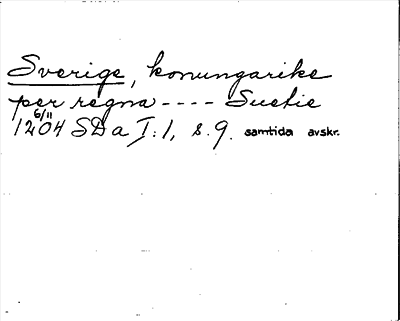 Sverige, konungarike
per regna ---- Suetie
6/11
1204 SD a I:1, s. 9. samtida avskr.